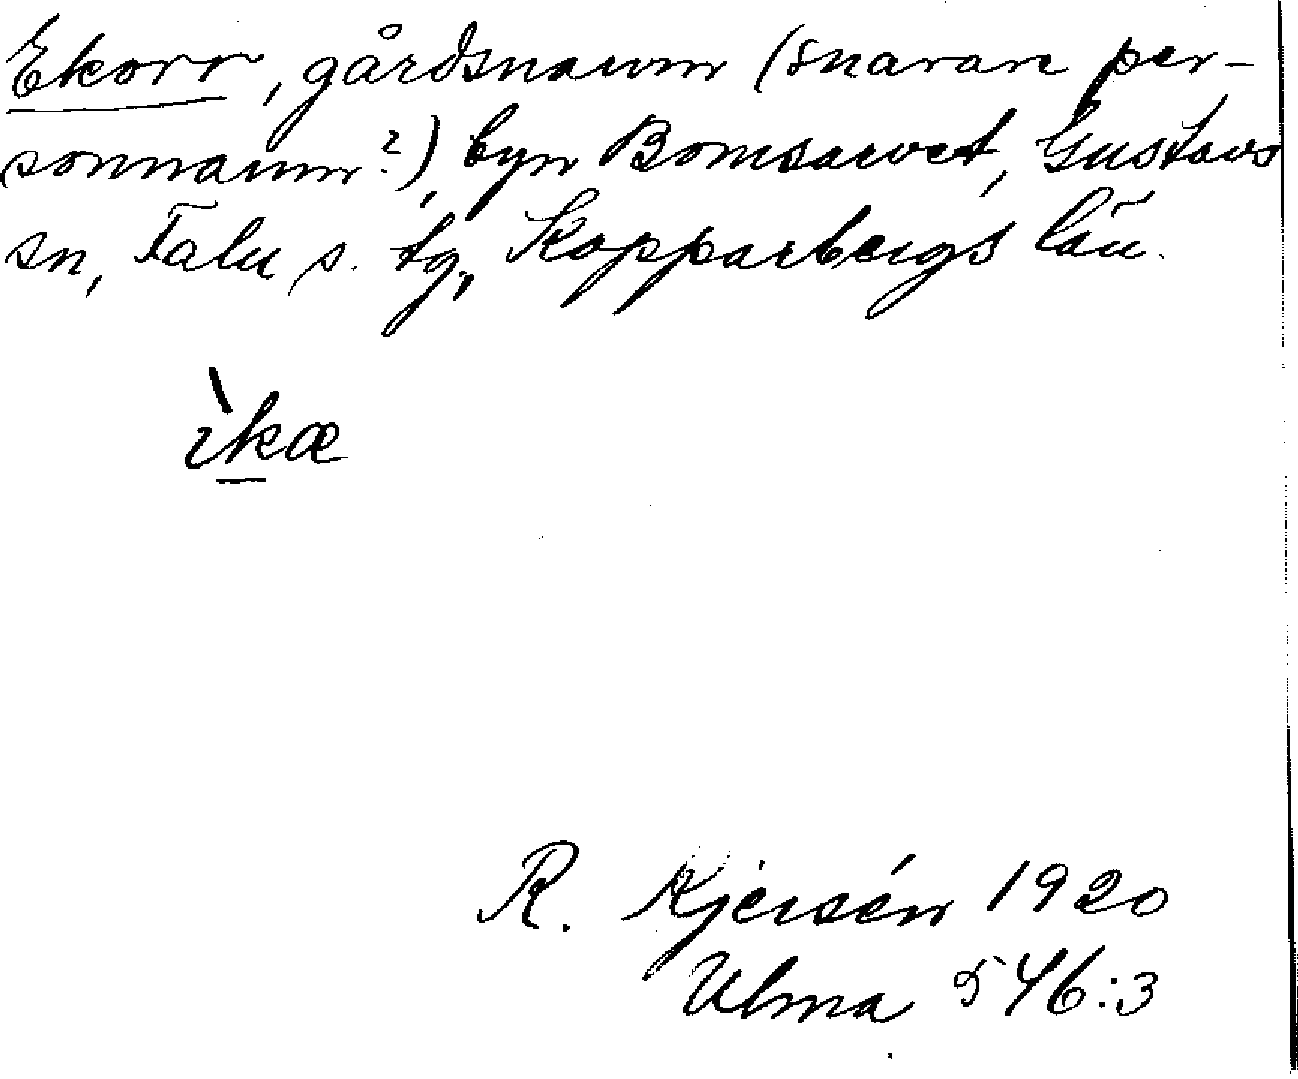 Ekorr, gårdsnamn (snarare per-
sonnamn?), byn Bomsarvet, Gustavs
sn, Falu s. tg., Kopparbergs län.
ìkæ
R. Kjersén 1920
Ulma 546:3